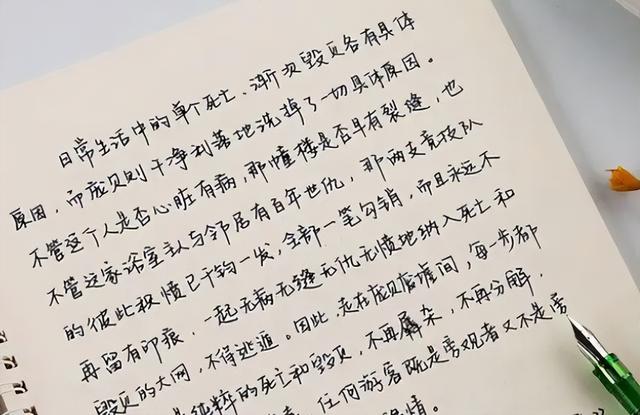 日常生活中的单个死亡、渐次毁灭各有具体
原因，而庞贝则干净利落地洗掉了一切具体原因。
不管这个人是否心脏有病，那幢楼是否早有裂缝，也
不管这家浴室主人与邻居有百年世仇，那两支竞技队
的彼此积愤已千钧一发，全部一笔勾销，而且永远不
再留有印痕，一起无病无缝无仇无愤地纳入死亡和
毁灭的大网，不得逃遁。因此，走在庞贝废墟间，每一步都
是纯粹的死亡和毁灭，不再羼杂，不再分解。
任何游客既是旁观者又不是旁
情。